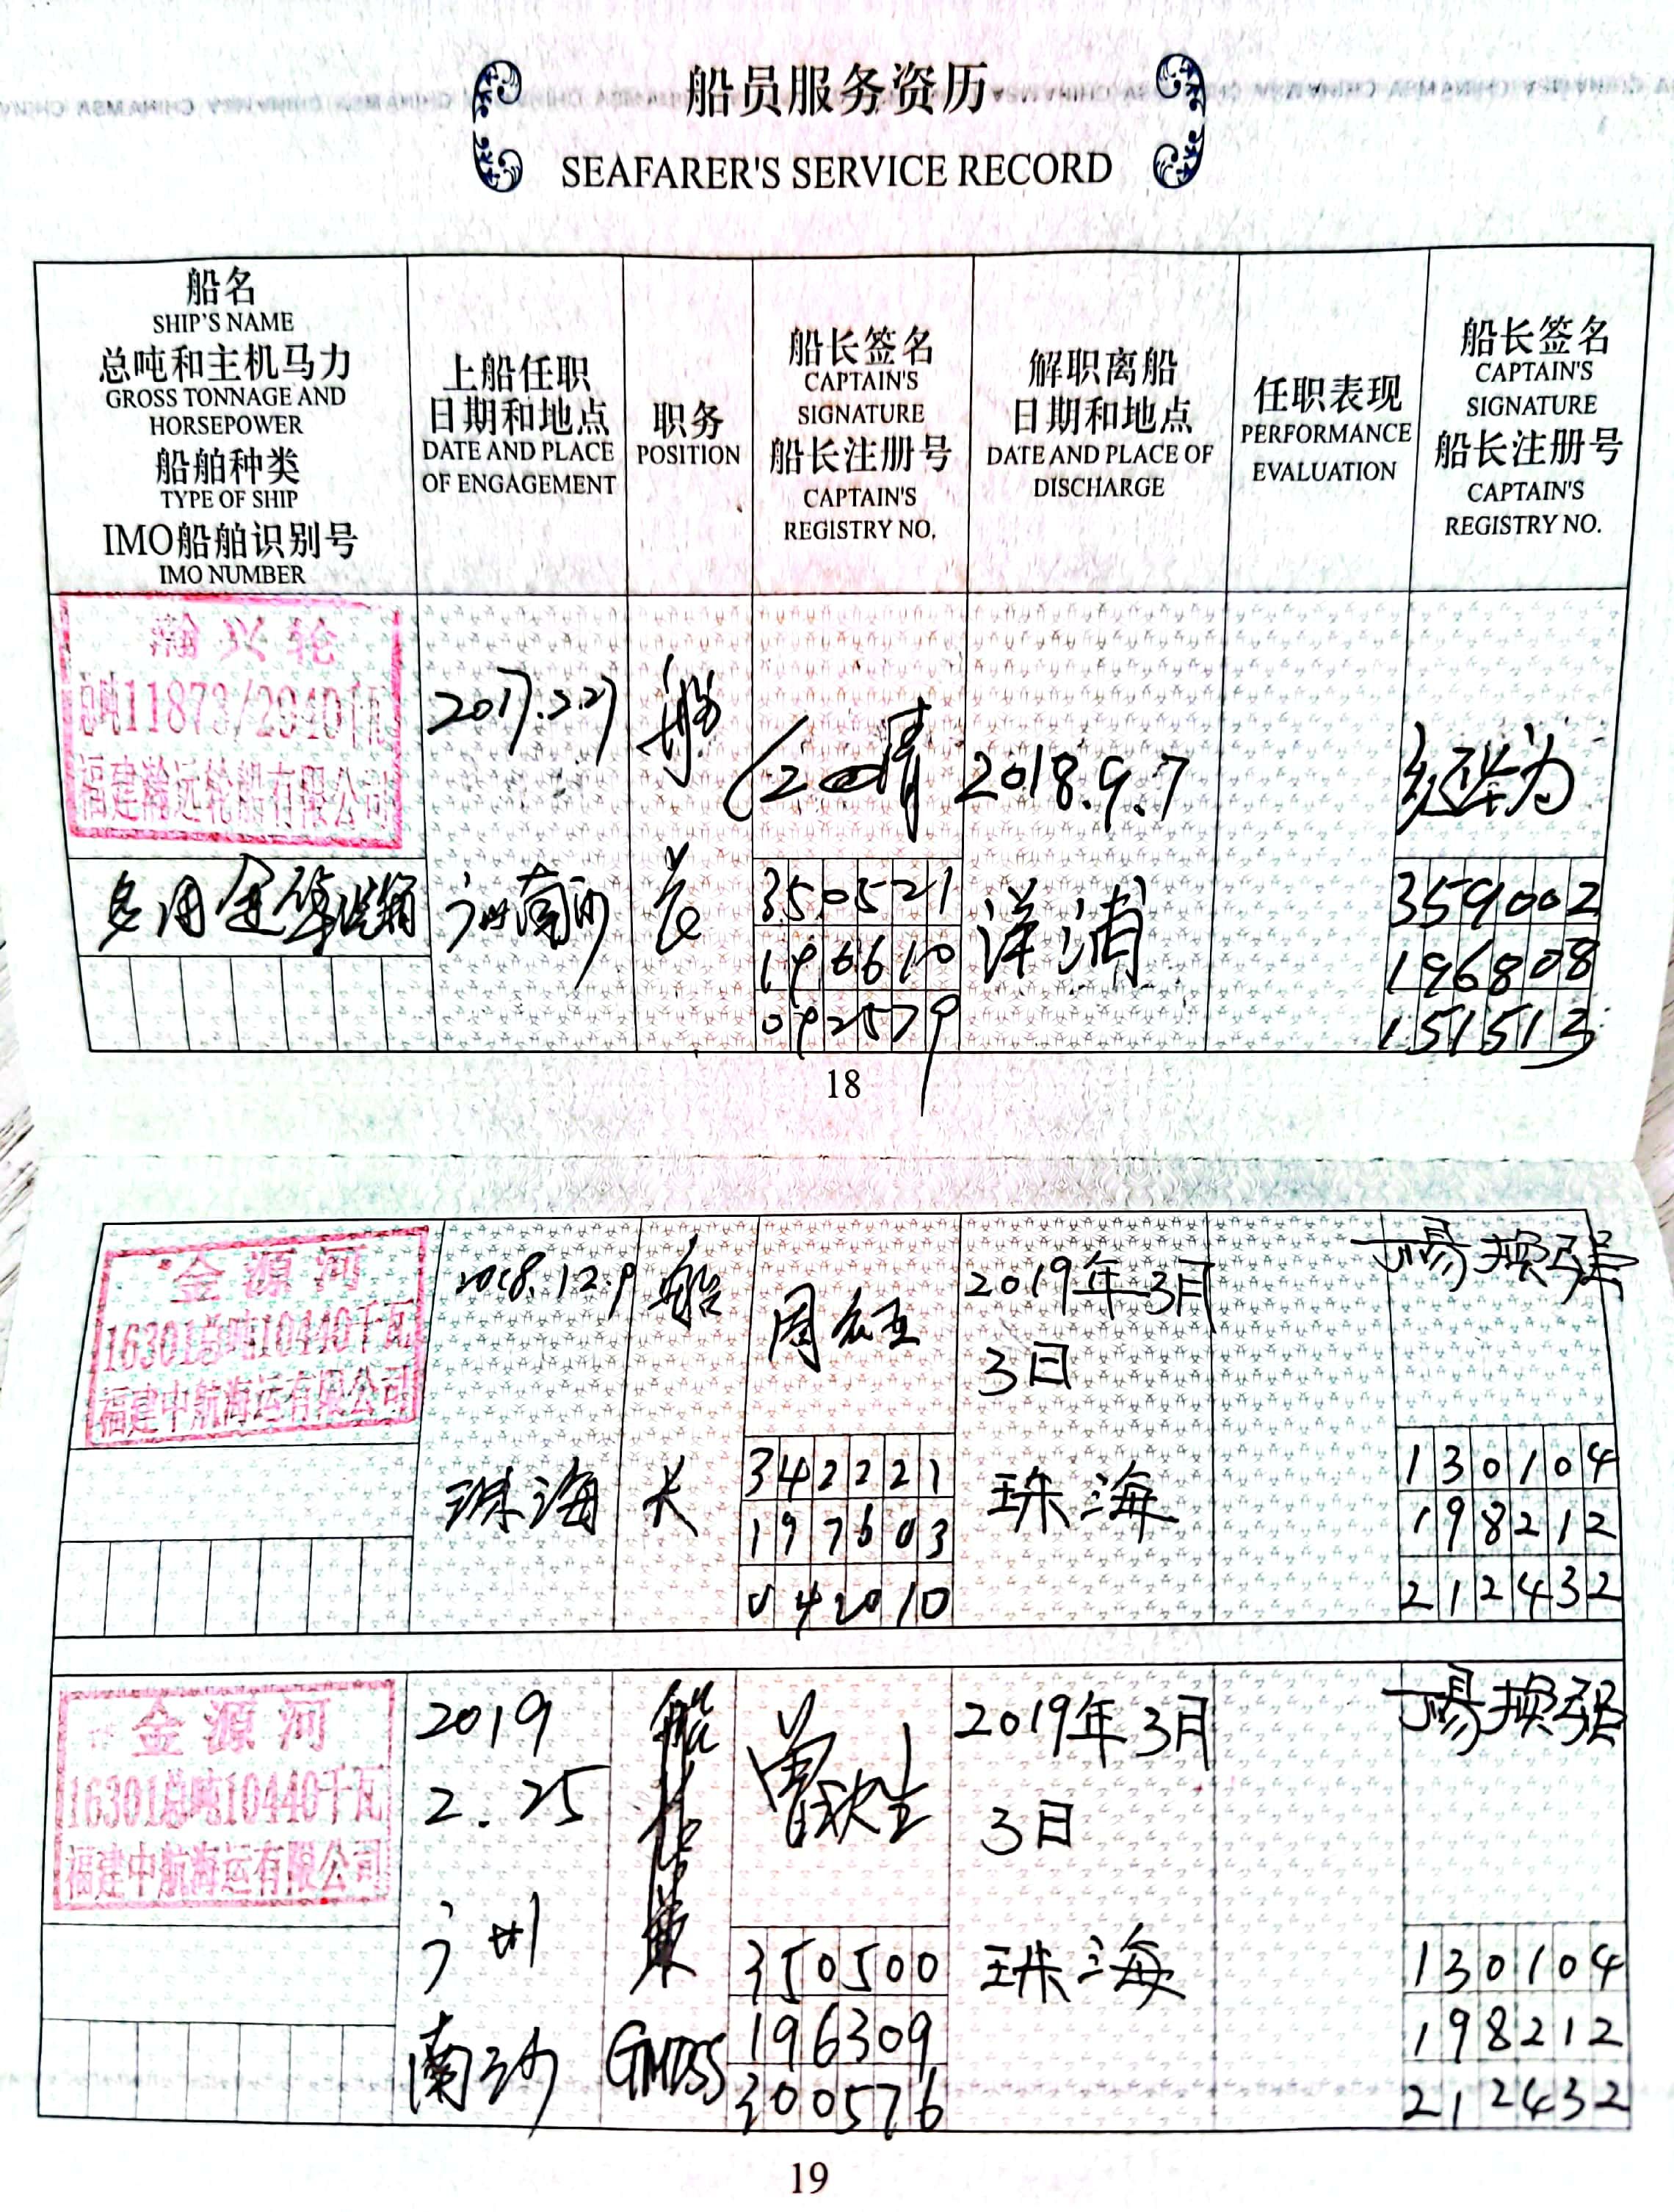 船员服务资历
SEAFARER'S SERVICE RECORD
船名
SHIP'S NAME
总吨和主机马力
GROSS TONNAGE AND
HORSEPOWER
船舶种类
TYPE OF SHIP
IMO船舶识别号
IMO NUMBER
上船任职
日期和地点
DATE AND PLACE
OF ENGAGEMENT
职务
POSITION
船长签名
CAPTAIN'S
SIGNATURE
船长注册号
CAPTAIN'S
REGISTRY NO.
解职离船
日期和地点
DATE AND PLACE OF
DISCHARGE
任职表现
PERFORMANCE
EVALUATION
船长签名
CAPTAIN'S
SIGNATURE
船长注册号
CAPTAIN'S
REGISTRY NO.
瀚兴轮
总吨11873/2940千瓦
福建瀚远轮船有限公司
多用途集装箱
2017.2.27
广州南沙
船
长
350521
196610
092579
2018.9.7
洋浦
359002
196808
151513
18
金源河
16301总吨10440千瓦
福建中航海运有限公司
2018.12.9
珠海
船
长
342221
197603
042010
2019年3月
3日
珠海
130104
198212
212432
金源河
16301总吨10440千瓦
福建中航海运有限公司
2019
2.25
广州
南沙
船
长
兼
GMDSS
350500
196309
300576
2019年3月
3日
珠海
130104
198212
212432
19